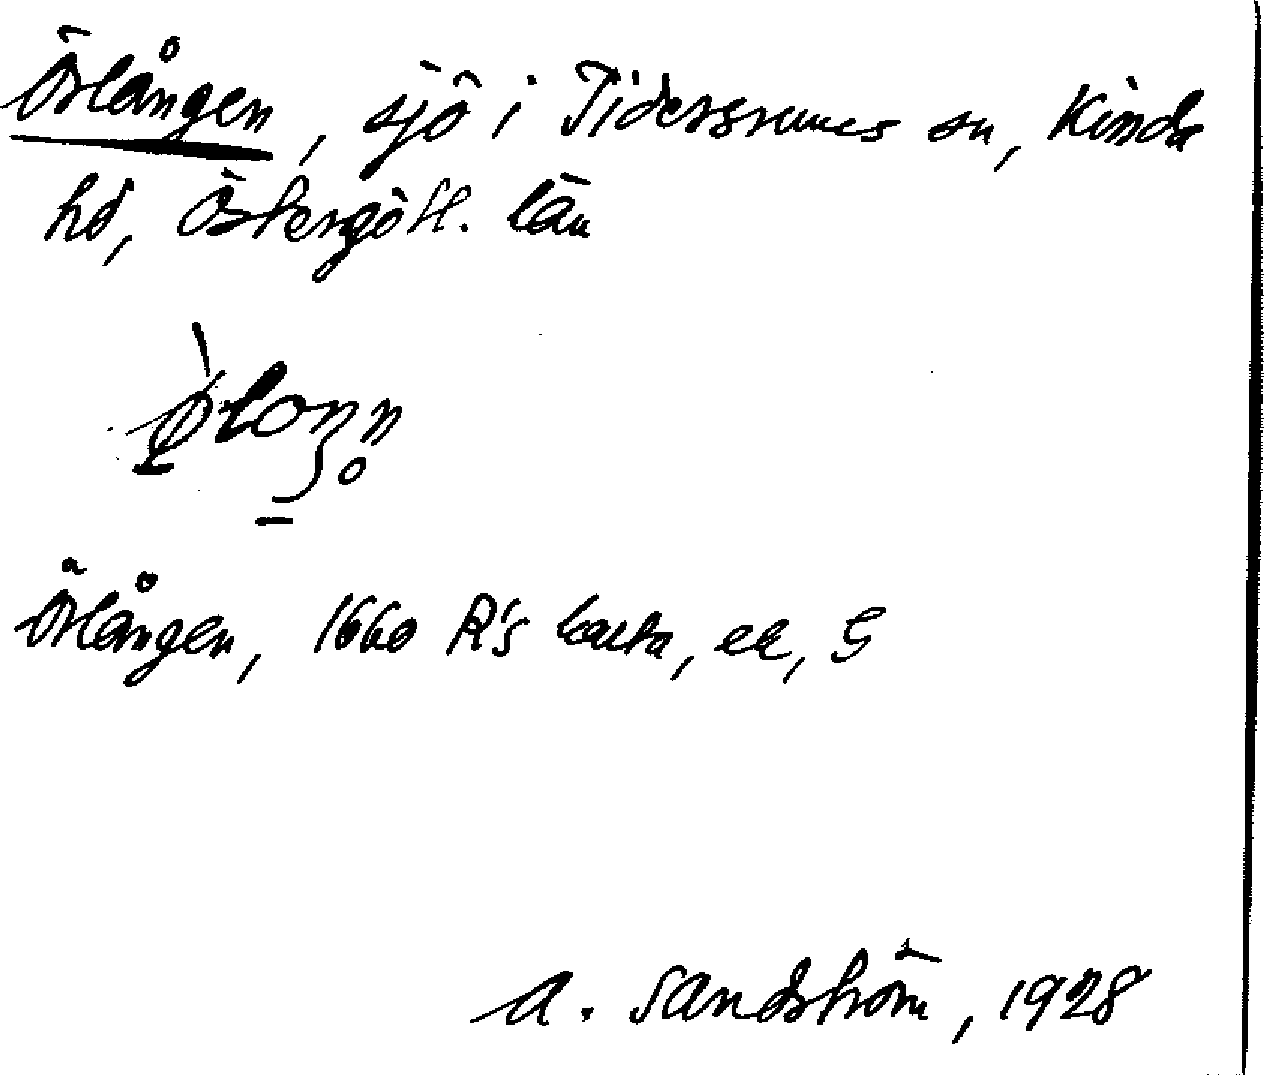 Örlången, sjö i Tidersrums sn, Kinda
hd, Östergötl. län
Örlången, 1660 R's karta, ek, G
A. Sandström, 1928